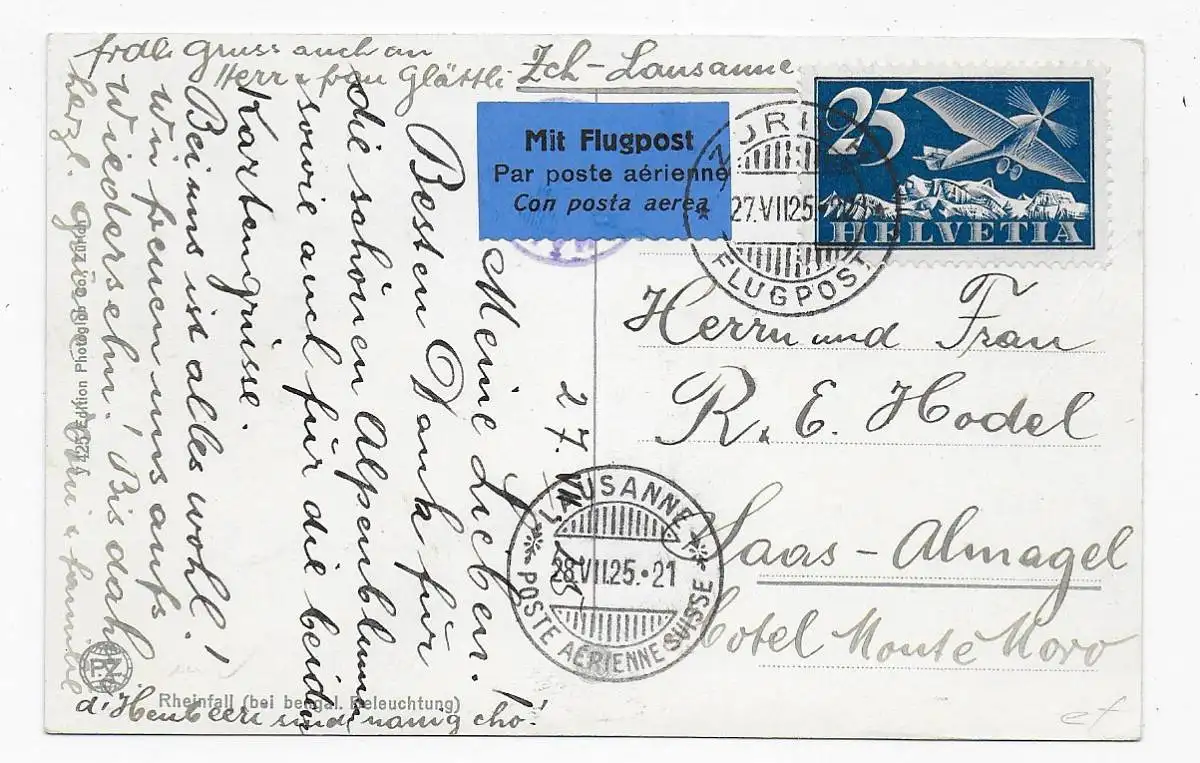 frdl. Gruss auch an
Herr u. frau Glättli.
Zch-Lausanne
Mit Flugpost
Par poste aérienne
Con posta aerea
25
HELVETIA
ZÜRICH
27.VII.25
FLUGPOST
Meine Lieben!
27. VII. 25.
Besten Dank für
die schönen Alpenblumen
sowie auch für die beiden
Kartengrüsse.
Bei uns ist alles wohl!
Wir freuen uns aufs
Wiedersehn! Bis dahin
herzl. Grüsse
& familie
d'Heubeeri sind namig cho!
Herrn und Frau
R. E. Hodel
Saas-Almagel
Hotel Monte Moro
LAUSANNE
28.VII.25.-21
POSTE AÉRIENNE SUISSE
Edition Photoglob Co., Zürich
Rheinfall (bei bengal. Beleuchtung)